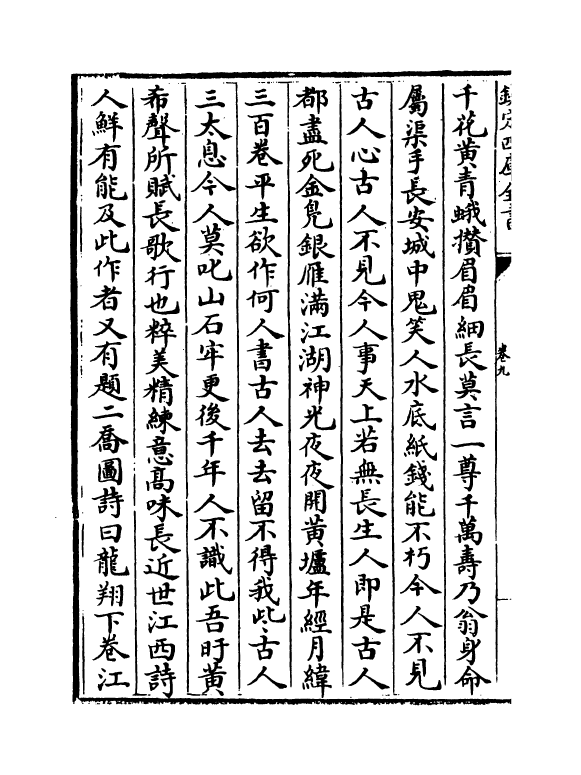 欽定四庫全書
卷九
千花黄青蛾攅眉眉細長莫言一尊千萬壽乃翁身命
屬渠手長安城中鬼笑人水底紙錢能不朽今人不見
古人心古人不見今人事天上若無長生人即是古人
都盡死金鳬銀雁滿江湖神光夜夜開黄壚年經月緯
三百卷平生欲作何人書古人去去留不得我此古人
三太息今人莫叱山石牢更後千年人不識此吾盱黄
希聲所賦長歌行也粹美精練意髙味長近世江西詩
人鮮有能及此作者又有題二喬圖詩曰龍翔下卷江